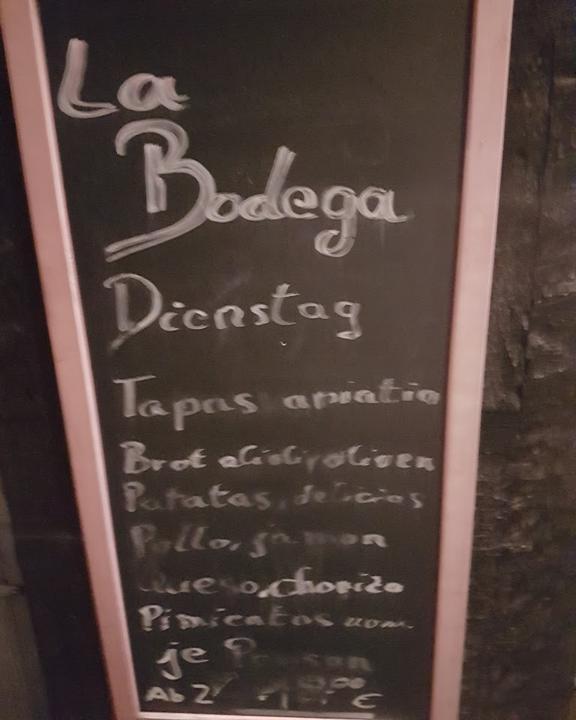 La
Bodega
Dienstag
Tapas
Brot alioli, oliven
Patatas, delicias
Pollo, jamon
Queso, chorizo
Pimientos
je Person
Ab 2 €